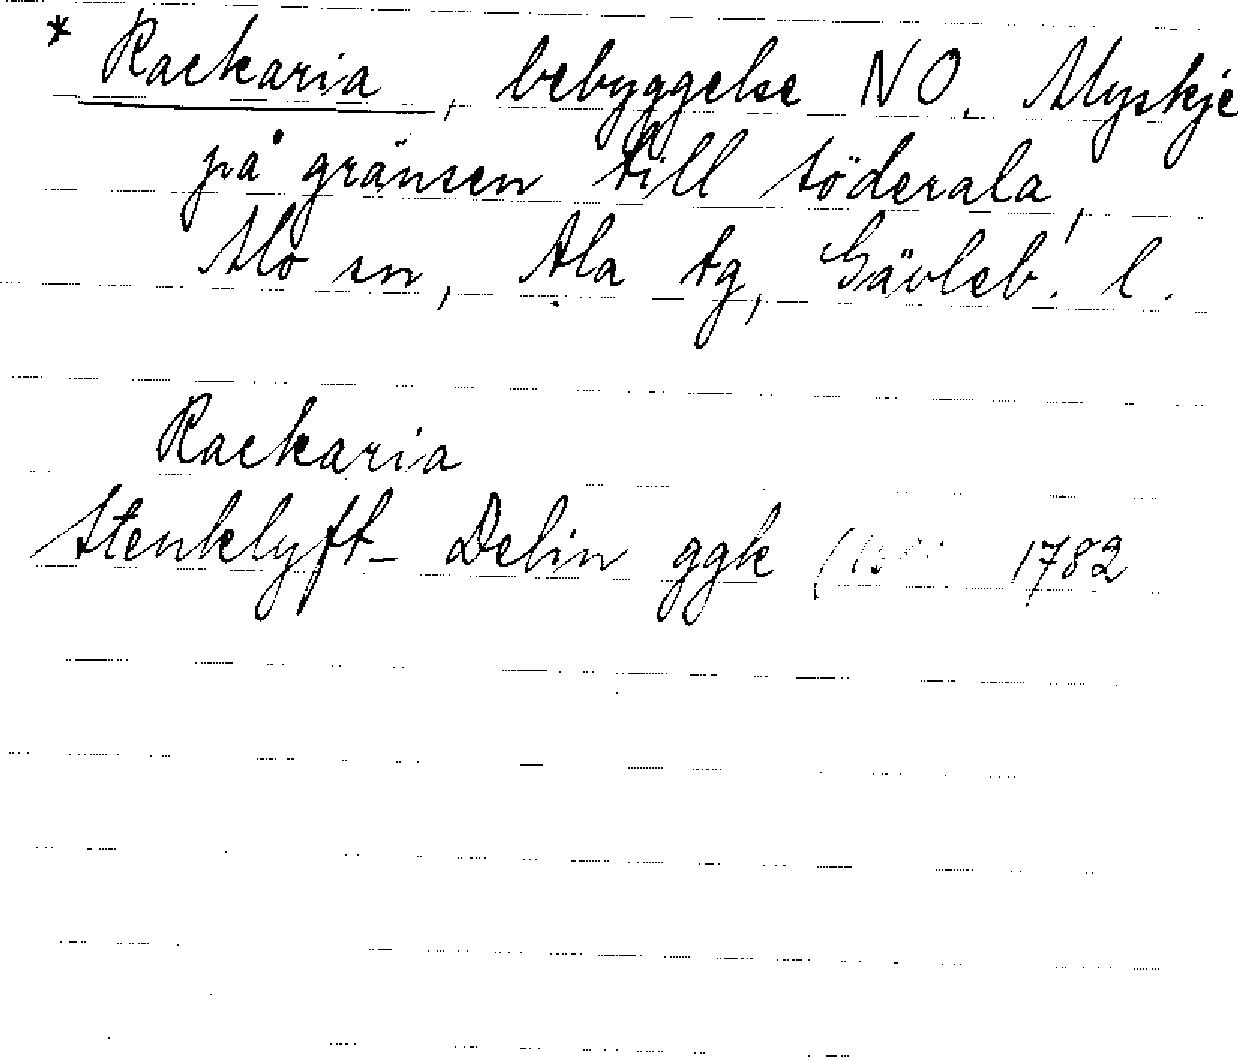 * Rackaria, bebyggelse NO. Myskje
på gränsen till Söderala,
Mo sn, Ala tg, Gävleb. l.
Rackaria
Stenklyft- Delin ggk ( 1782